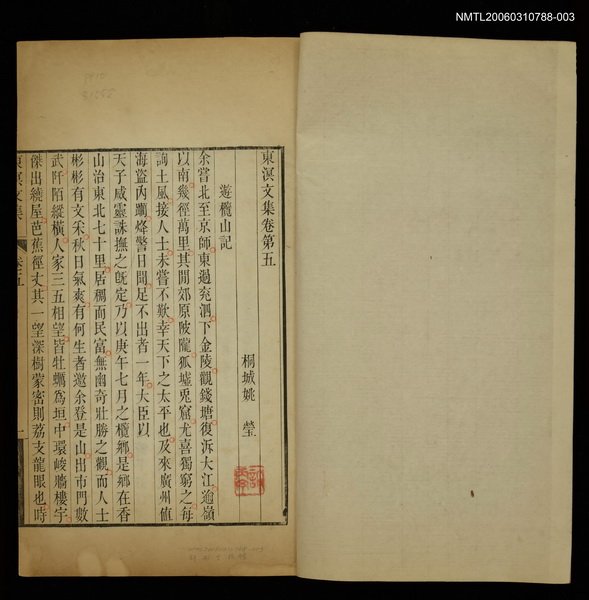 NMTL20060310788-003
東溟文集卷第五
桐城姚瑩
遊欖山記
余嘗北至京師東過兗泗下金陵觀錢塘復泝大江逾嶺
以南幾徑萬里其閒郊原陂隴狐墟兎窟尤喜獨窮之每
詢土風接人士未嘗不歎幸天下之太平也及來廣州値
海盜內躪烽警日聞足不出者一年大臣以
天子威靈誅撫之旣定乃以庚午七月之欖鄕是鄕在香
山治東北七十里居稠而民富無幽奇壯勝之觀而人士
彬彬有文采秋日氣爽有何生者邀余登是山出市門數
武阡陌縱橫人家三五相望皆牡蠣爲垣中環峻牆樓宇
傑出繞屋芭蕉徑丈其一望深樹蒙密則荔支龍眼也時
東溟文集 卷五 一